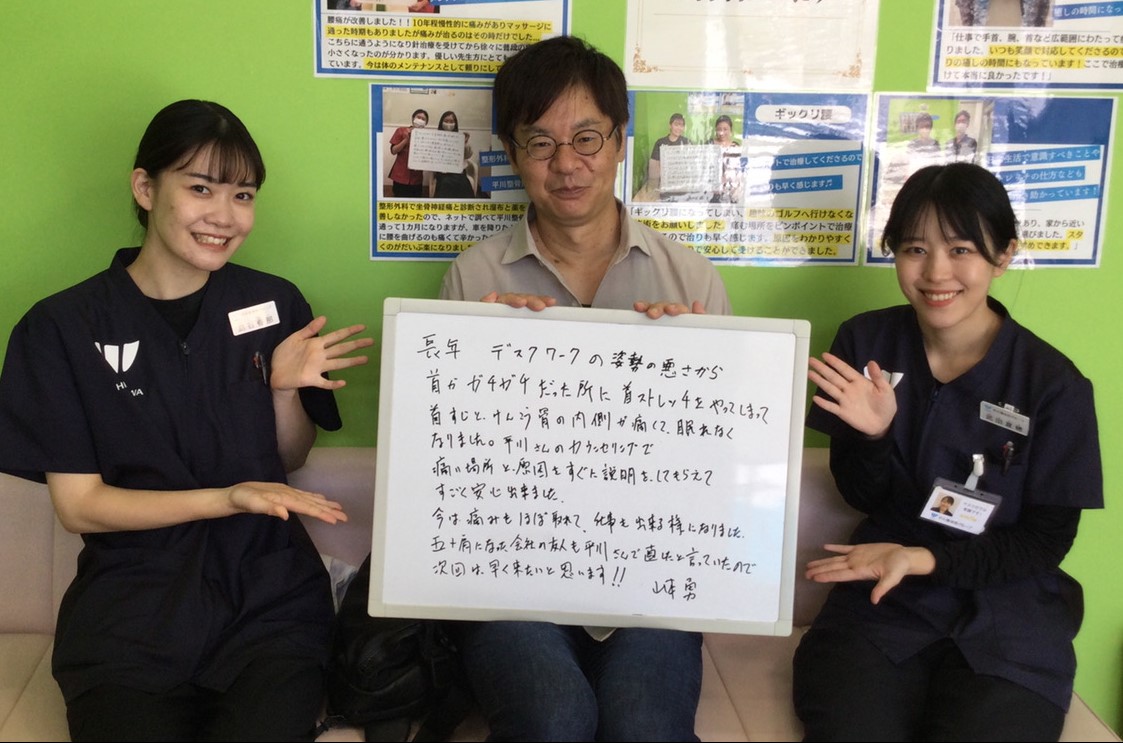 腰痛が改善しました!!10年程慢性的に痛みがありマッサージに
通った時期もありましたが痛みが治るのはその時だけでした
こちらに通うようになり針治療を受けてから徐々に普段の
小さくなったのが分かります。優しい先生方にとて
ています。今は体のメンテナンスとして頼りにして
整形外
平川整骨
整形外科で坐骨神経痛と診断され湿布と薬を
善しなかったので、ネットで調べて平川整
通って1カ月になりますが、車を降りた
に腰を曲げるのも痛くて辛かった
くのがだいぶ楽になりました
ギックリ腰
ントで治療してくださるので
りも早く感じます♬
「ギックリ腰になってしまい、
ゴルフへ行けなくな
術をお願いしました。痛む場所をピンポイントで治療
るので治りも早く感じます。原因をわかりやすく
で安心して受けることができました。
癒しの時間になっ
「仕事で手首、腕、首など広範囲にわたって
りました。いつも笑顔で対応してくださるので
りの癒しの時間にもなっています!ここで治療
けて本当に良かったです!」
生活で意識すべきことや
レッチの仕方なども
助かっています!
あり、家から近い
選びました。スタ
できます。」
HI
WA
長年 デスクワークの姿勢の悪さから
首がガチガチだった所に首ストレッチをやってしまって
首すじと、けんこう骨の内側が痛くて、眠れなく
なりました。平川さんのカウンセリングで
痛い場所と、原因をすぐに説明をしてもらえて
すごく安心出来ました。
今は痛みもほぼ取れて、仕事も出来る様になりました。
五十肩になった会社の友人も平川さんで直ったと言っていたので
次回は、早く来たいと思います!!
山本 勇